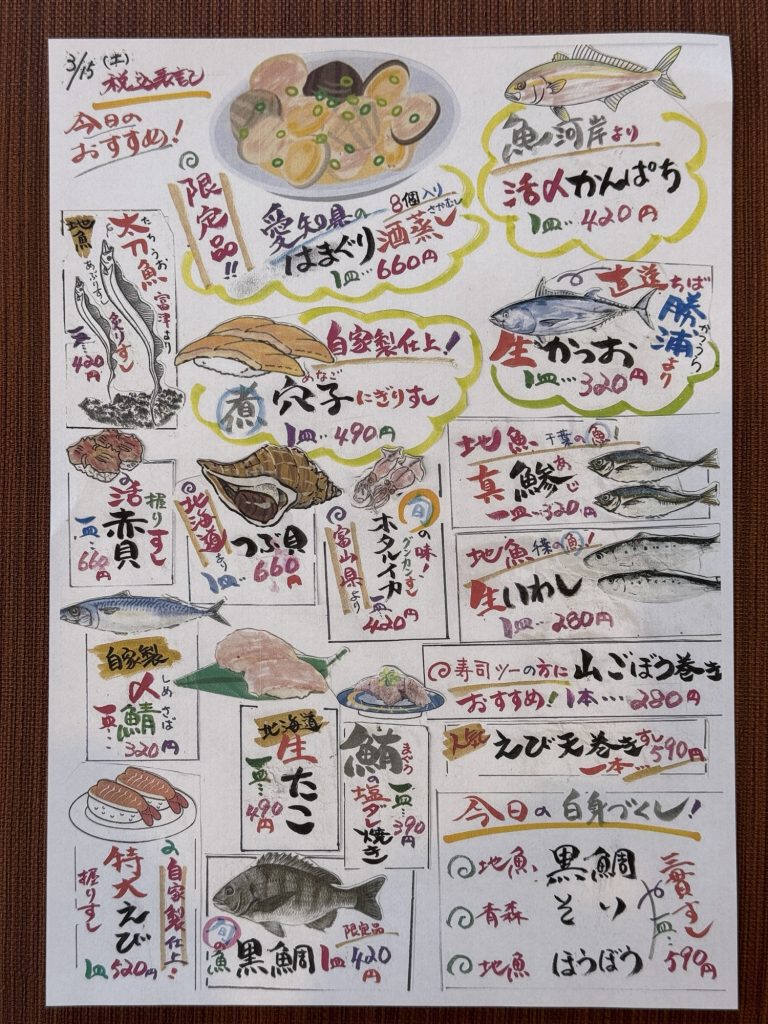 3/15(土)
税込表記
今日の
おすすめ!
限定品!!
愛知県の8個入り
はまぐり酒蒸し
さかむし
1皿…660円
魚河岸より
活〆かんぱち
1皿…420円
地魚
太刀魚
たちうお
富津より
あぶりすし
炙りすし
一皿…420円
自家製仕上!
煮穴子にぎりすし
あなご
1皿…490円
ちば
勝浦より
かつうら
生かつお
1皿…320円
活赤貝
握りすし
一皿…660円
北海道より
つぶ貝
1皿…660円
旬の味!
ホタルイカ
グンカンすし
富山県より
一皿…420円
地魚 千葉の魚!
真鯵
あじ
一皿…320円
地魚 僕の魚!
生いわし
1皿…280円
自家製
〆鯖
しめさば
一皿…320円
北海道
生たこ
一皿…490円
鮪の塩ダレ焼き
まぐろ
一皿…390円
寿司ツーの方に 山ごぼう巻き
おすすめ! 1本…280円
人気 えび天巻きすし
一本…590円
特大えび
握りすし
自家製仕上!
1皿520円
旬の魚
黒鯛
限定品
1皿420円
今日の白身づくし!
地魚 黒鯛
青森 そい
地魚 ほうぼう
三貫すし
一皿…590円